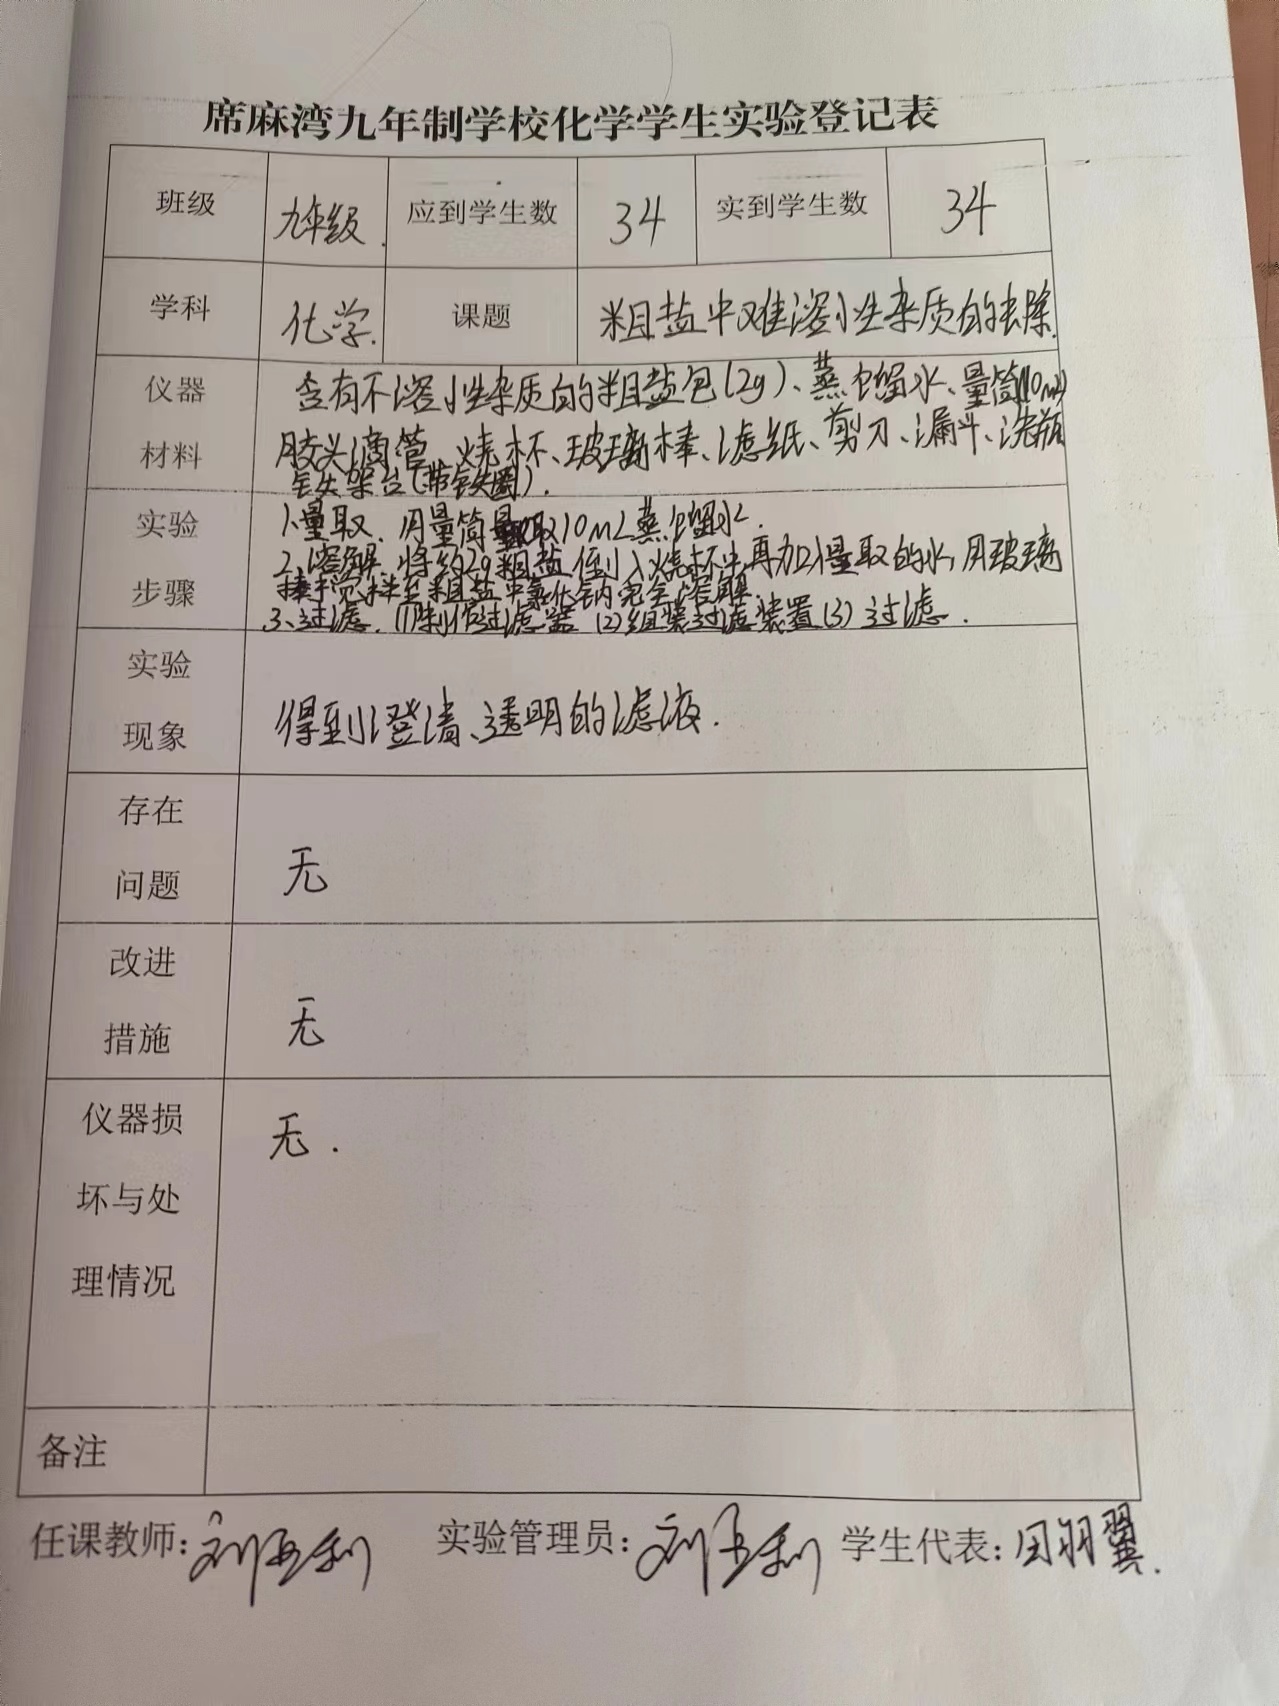 席麻湾九年制学校化学学生实验登记表
班级 九年级. 应到学生数 34 实到学生数 34
学科 化学. 课题 粗盐中难溶性杂质的去除.
仪器 材料
含有不溶性杂质的粗盐包(2g)、蒸馏水、量筒(10mL)
胶头滴管、烧杯、玻璃棒、滤纸、剪刀、漏斗、洗瓶
铁架台(带铁圈).
实验 步骤
1.量取.用量筒量取10mL蒸馏水.
2.溶解.将约2g粗盐倒入烧杯中,再加入量取的水,用玻璃
棒搅拌至粗盐中氯化钠完全溶解.
3、过滤.(1)制作过滤器 (2)组装过滤装置(3)过滤.
实验 现象
得到澄清、透明的滤液.
存在 问题
无
改进 措施
无
仪器损 坏与处 理情况
无.
备注
任课教师: 实验管理员: 学生代表: